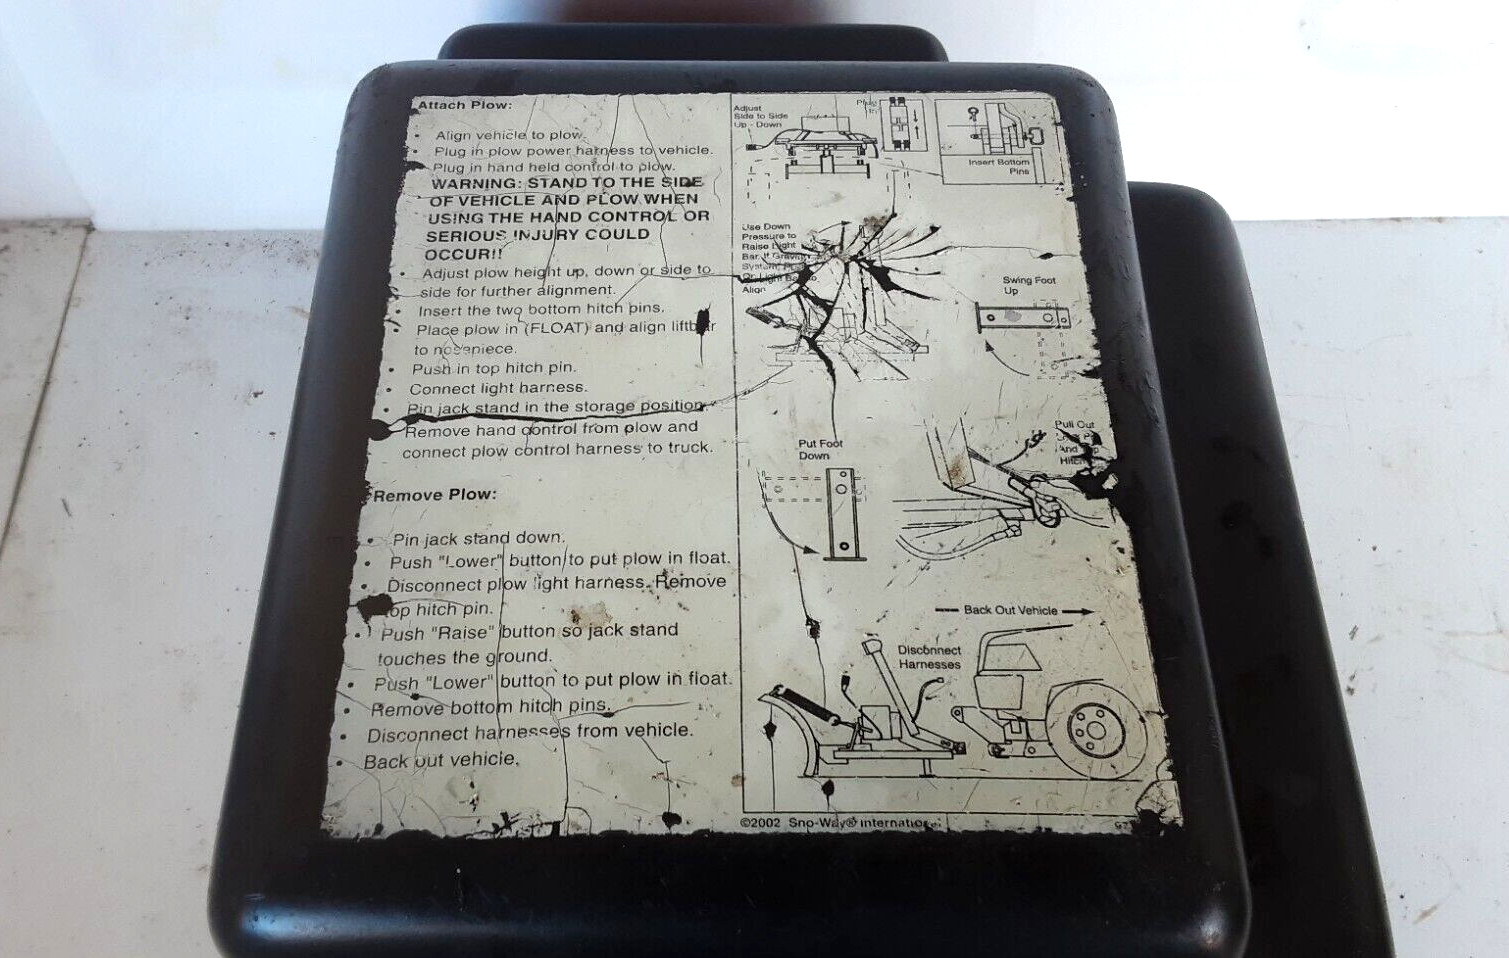 Attach Plow:
• Align vehicle to plow.
• Plug in plow power harness to vehicle.
Plug in hand held control to plow.
WARNING: STAND TO THE SIDE
OF VEHICLE AND PLOW WHEN
USING THE HAND CONTROL OR
SERIOUS INJURY COULD
OCCUR!!
• Adjust plow height up, down or side to
side for further alignment.
• Insert the two bottom hitch pins.
• Place plow in (FLOAT) and align liftbar
to nosepiece.
• Push in top hitch pin.
• Connect light harness.
• Pin jack stand in the storage position.
Remove hand control from plow and
connect plow control harness to truck.
Remove Plow:
• Pin jack stand down.
• Push "Lower" button to put plow in float.
• Disconnect plow light harness. Remove
top hitch pin.
• Push "Raise" button so jack stand
touches the ground.
• Push "Lower" button to put plow in float.
• Remove bottom hitch pins.
• Disconnect harnesses from vehicle.
• Back out vehicle.
Adjust
Side to Side
Up - Down
Plug
In
Insert Bottom
Pins
Use Down
Pressure to
Raise Light
Bar. If Gravity
System,
On Light
Align
Swing Foot
Up
Put Foot
Down
Pull Out
And Top
Back Out Vehicle
Disconnect
Harnesses
©2002 Sno-Way® International